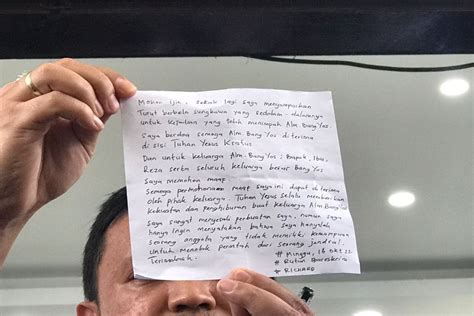 Mohon izin, sekali lagi saya menyampaikan
Turut berbela sungkawa yang sedalam-dalamnya
untuk kejadian yang telah menimpah Alm. Bang Yos.
Saya berdoa semoga Alm. Bang Yos diterima
di sisi Tuhan Yesus Kristus
Dan untuk keluarga Alm. Bang Yos: Bapak, Ibu,
Reza serta seluruh keluarga besar Bang Yos
Saya memohon maaf
Semoga permohonan maaf saya ini dapat diterima
oleh pihak keluarga. Tuhan Yesus selalu memberikan
kekuatan dan penghiburan buat keluarga Alm. Bang Yos
Saya sangat menyesali perbuatan saya, namun saya
hanya ingin menyatakan bahwa saya hanyalah
seorang anggota yang tidak memiliki kemampuan
untuk menolak perintah dari seorang jendral.
Terimakasih.
# Minggu, 16 Okt 22
# Rutan Bareskrim
# RICHARD